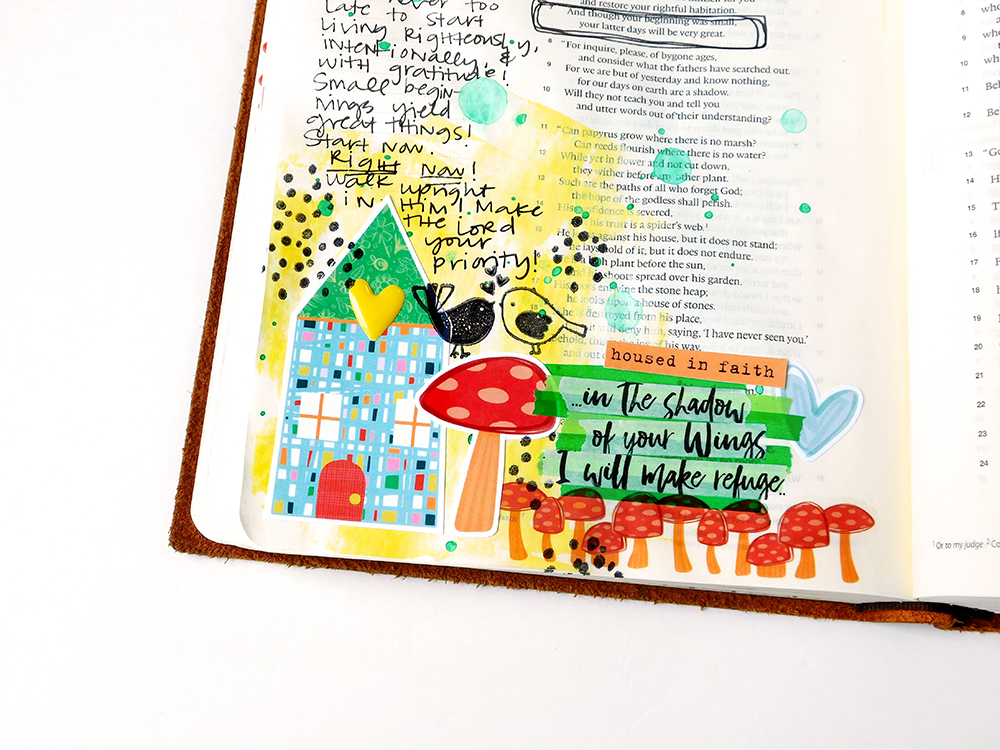 Late never too
late to start
living Righteously,
intentionally, &
with gratitude!
Small begin-
nings yield
great things!
Start now.
Right now!
Walk upright
in Him! Make
the Lord
your
priority!
and restore your rightful habitation.
7 And though your beginning was small,
your latter days will be very great.
8 “For inquire, please, of bygone ages,
and consider what the fathers have searched out.
9 For we are but of yesterday and know nothing,
for our days on earth are a shadow.
10 Will they not teach you and tell you
and utter words out of their understanding?
11 “Can papyrus grow where there is no marsh?
Can reeds flourish where there is no water?
12 While yet in flower and not cut down,
they wither before any other plant.
13 Such are the paths of all who forget God;
the hope of the godless shall perish.
14 His confidence is severed,
his trust is a spider's web.¹
He leans against his house, but it does not stand;
he lays hold of it, but it does not endure.
lush plant before the sun,
and his shoots spread over his garden.
His roots entwine the stone heap;
he looks upon a house of stones.
18 he is destroyed from his place,
it will deny him, saying, ‘I have never seen you.’
Behold, this is the joy of his way,
and out
housed in faith
...in the shadow
of your Wings
I will make refuge..
8
9
10
11
12
13 “G
14 H
15 T
16 If
17
18 h
19
20
21
22
23
24
¹ Or to my judge ² Co